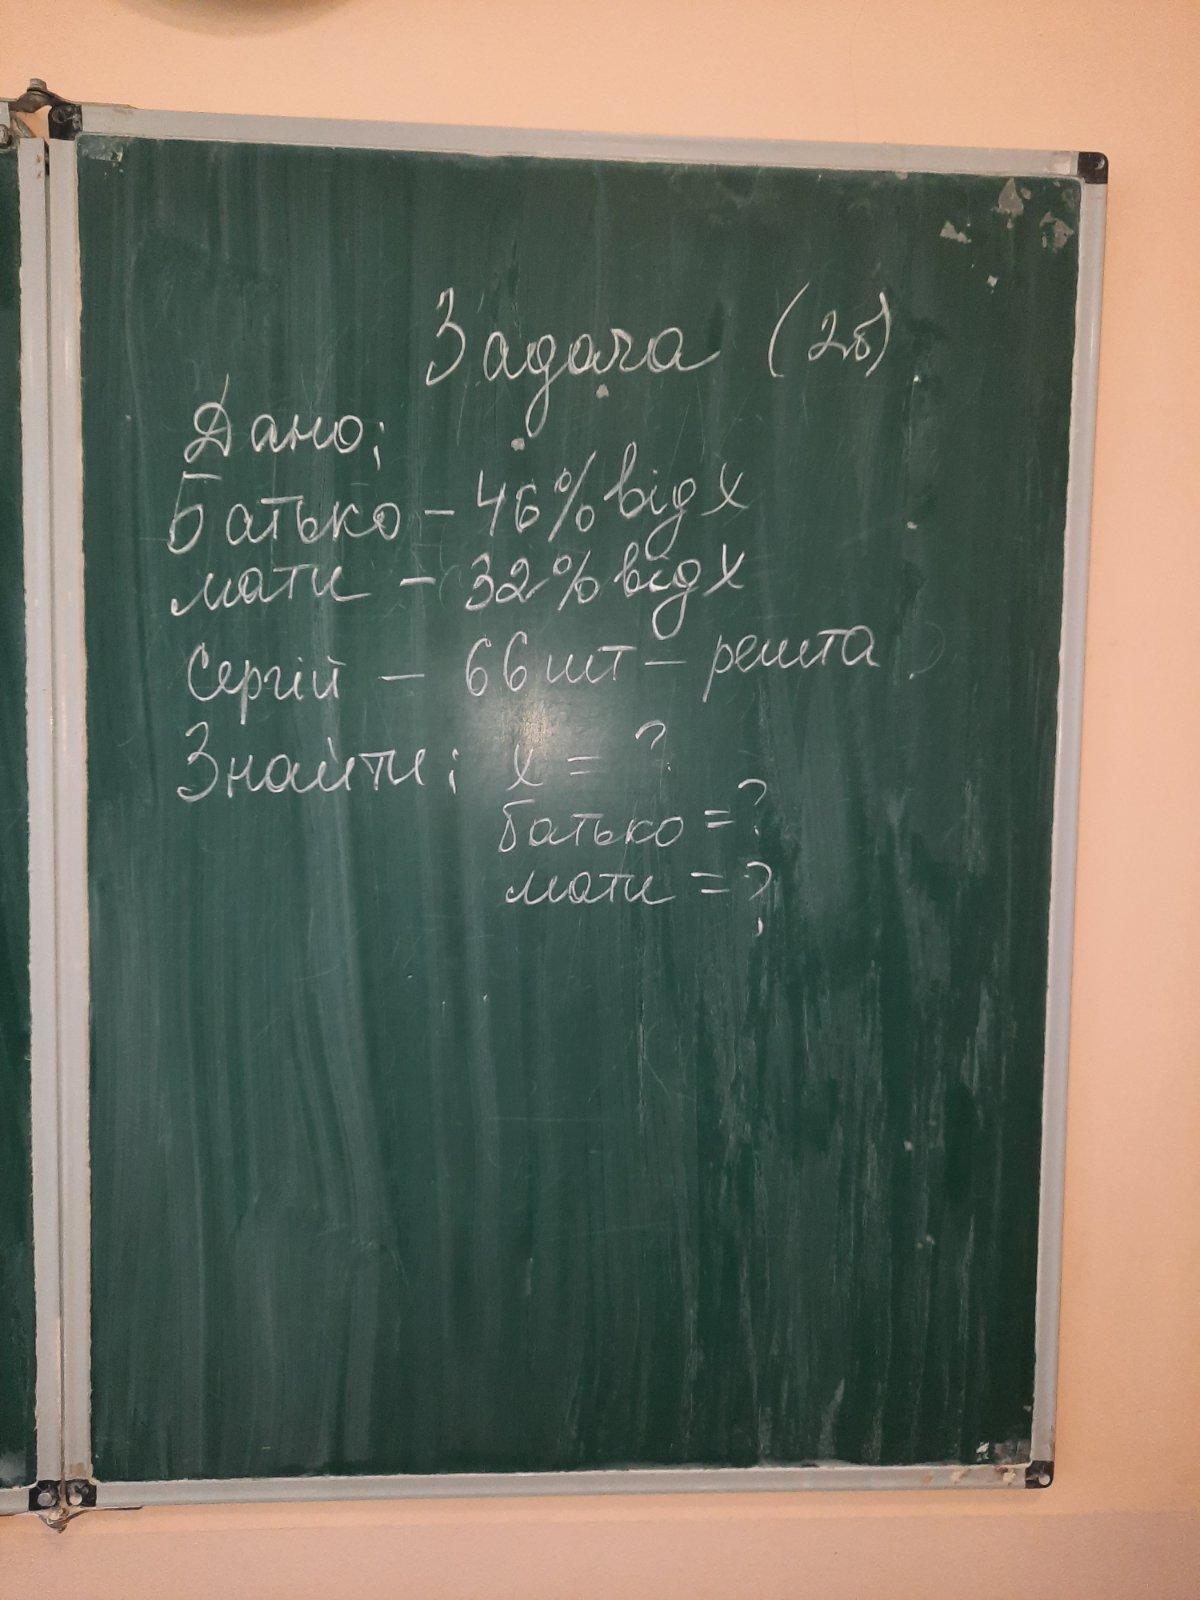 Задача (2б)
Дано:
Батько - 46% від х
мати - 32% від х
Сергій - 66 шт - решта
Знайти: х = ?
батько = ?
мати = ?